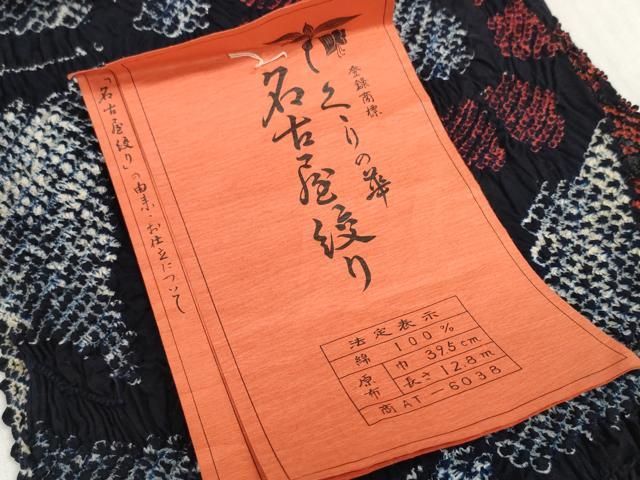 登録商標
くゝりの華
名古屋絞り
「名古屋絞り」の由来・お仕立について
法定表示
綿 100%
原布 巾 39.5cm
長さ 12.8m
商AT-6038